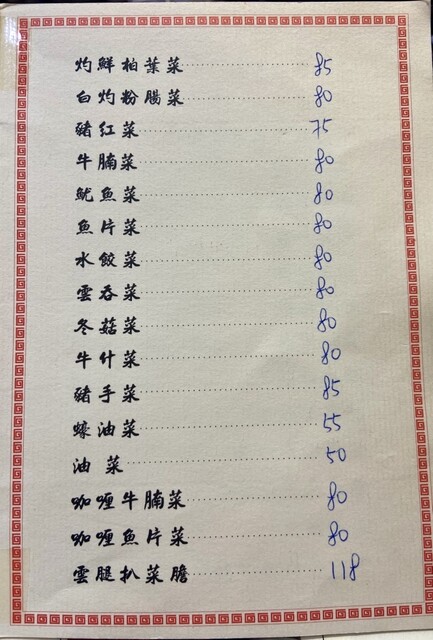 灼鮮柏葉菜 85
白灼粉腸菜 80
豬红菜 75
牛腩菜 80
魷魚菜 80
魚片菜 80
水餃菜 80
雲吞菜 80
冬菇菜 80
牛什菜 80
豬手菜 85
蠔油菜 55
油菜 50
咖喱牛腩菜 80
咖喱魚片菜 80
雲腿扒菜膽 118